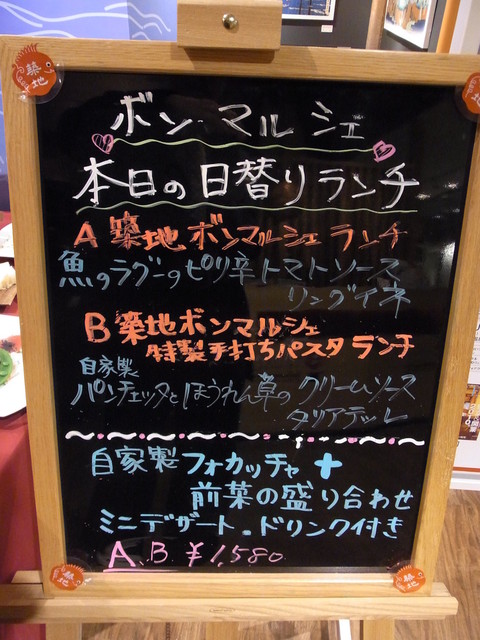 築地
ボン・マルシェ
本日の日替りランチ
A 築地ボンマルシェ ランチ
魚のラグーのピリ辛トマトソース
リングイネ
B 築地ボンマルシェ
特製手打ちパスタ ランチ
自家製
パンチェッタとほうれん草の クリームソース
タリアテッレ
自家製フォカッチャ +
前菜の盛り合わせ
ミニデザート・ドリンク付き
A.B ¥1,580
築地
築地